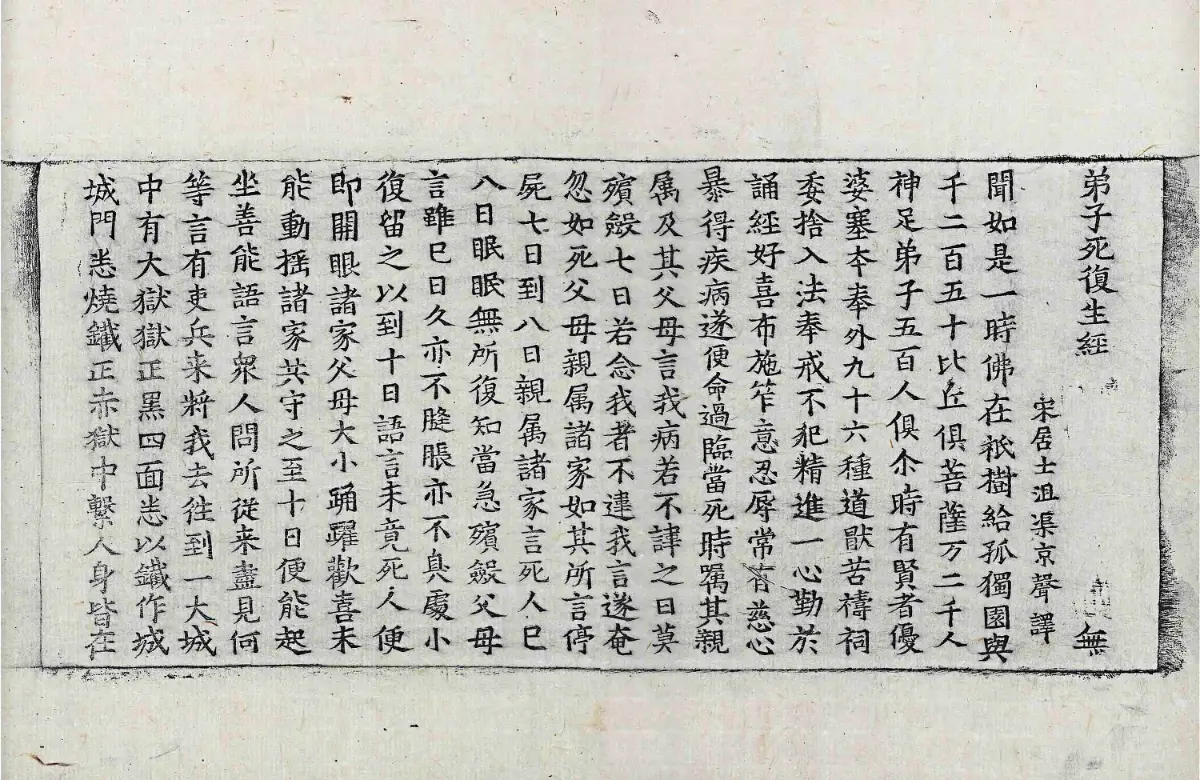 弟子死復生經 無
宋居士沮渠京聲譯
聞如是一時佛在祇樹給孤獨園與
千二百五十比丘俱菩薩万二千人
神足弟子五百人俱尒時有賢者優
婆塞夲奉外九十六種道猒苦禱祠
委捨入法奉戒不犯精進一心勤於
誦經好喜布施笮意忍辱常有慈心
暴得疾病遂便命過臨當死時囑其親
属及其父母言我病若不諱之日莫
殯殮七日若念我者不違我言遂奄
忽如死父母親属諸家如其所言停
屍七日到八日親属諸家言死人已
八日眠眠無所復知當急殯殮父母
言雖已日久亦不膖脹亦不臭處小
復留之以到十日語言未竟死人便
即開眼諸家父母大小踊躍歡喜未
能動揺諸家共守之至十日便能起
坐善能語言衆人問所從来盡見何
等言有吏兵来將我去徃到一大城
中有大獄獄正黑四面悉以鐵作城
城門悉燒鐵正赤獄中繫人身皆在